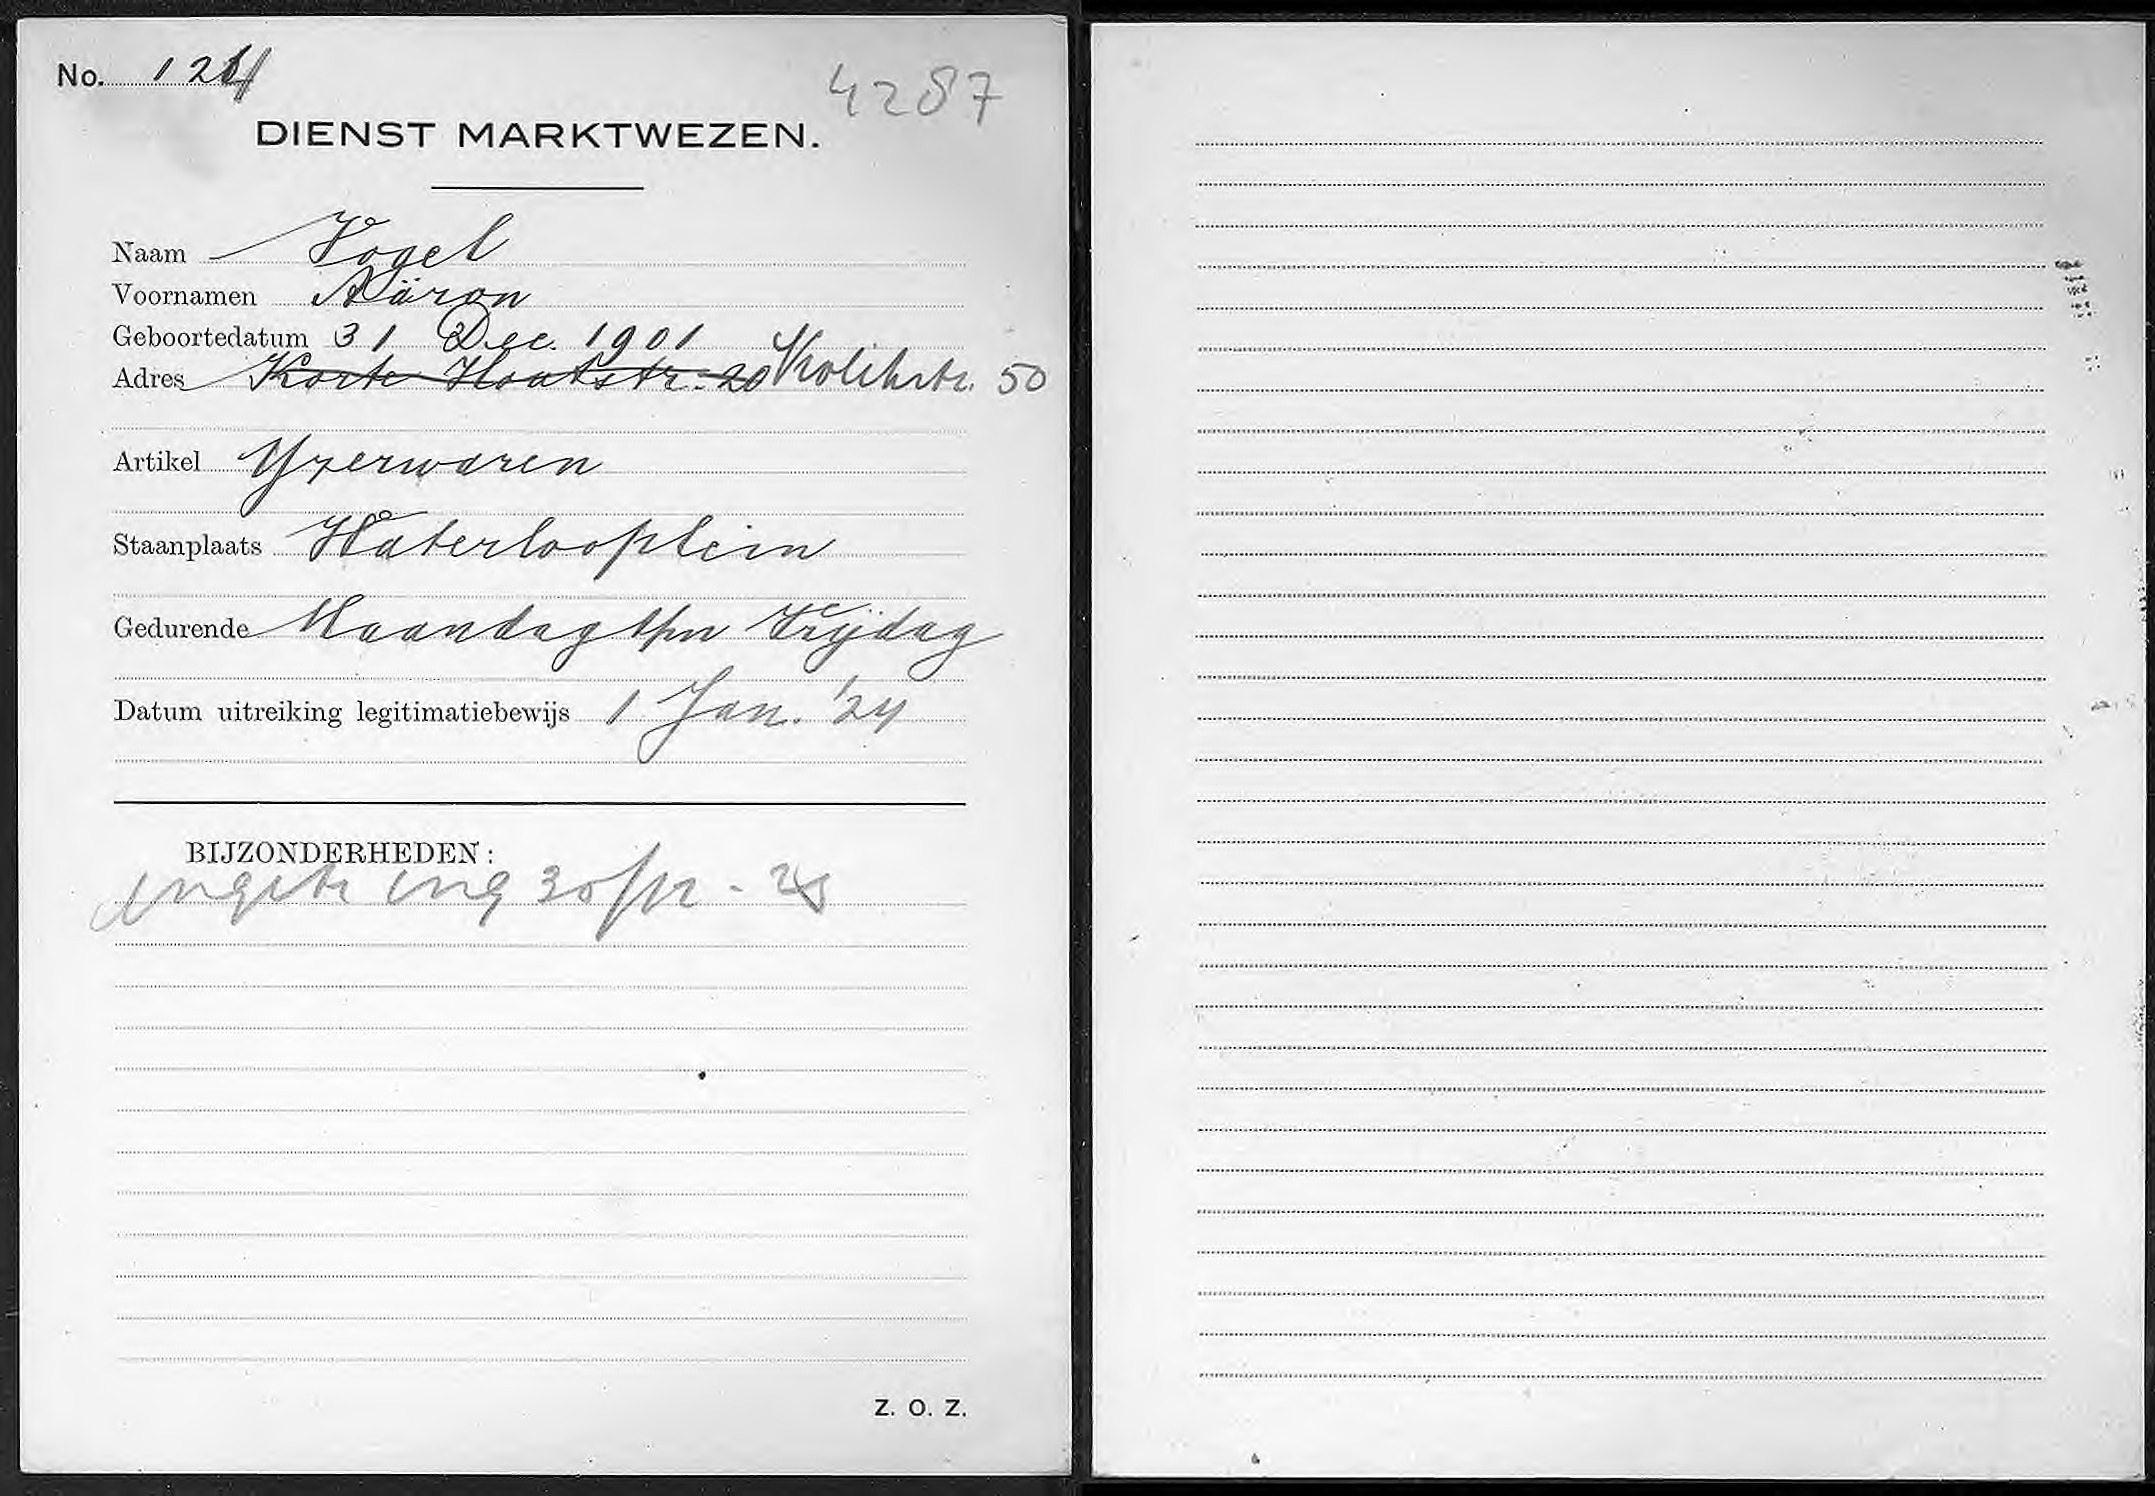 No. 124
4287
DIENST MARKTWEZEN.
Naam Vogel
Voornamen Aäron
Geboortedatum 31 Dec. 1901
Adres Korte Houtstr. 20 50
Artikel Yzerwaren
Staanplaats Waterlooplein
Gedurende Maandag t/m Vrijdag
Datum uitreiking legitimatiebewijs 1 Jan. '24
BIJZONDERHEDEN:
ing 30/12 - 25
Z. O. Z.